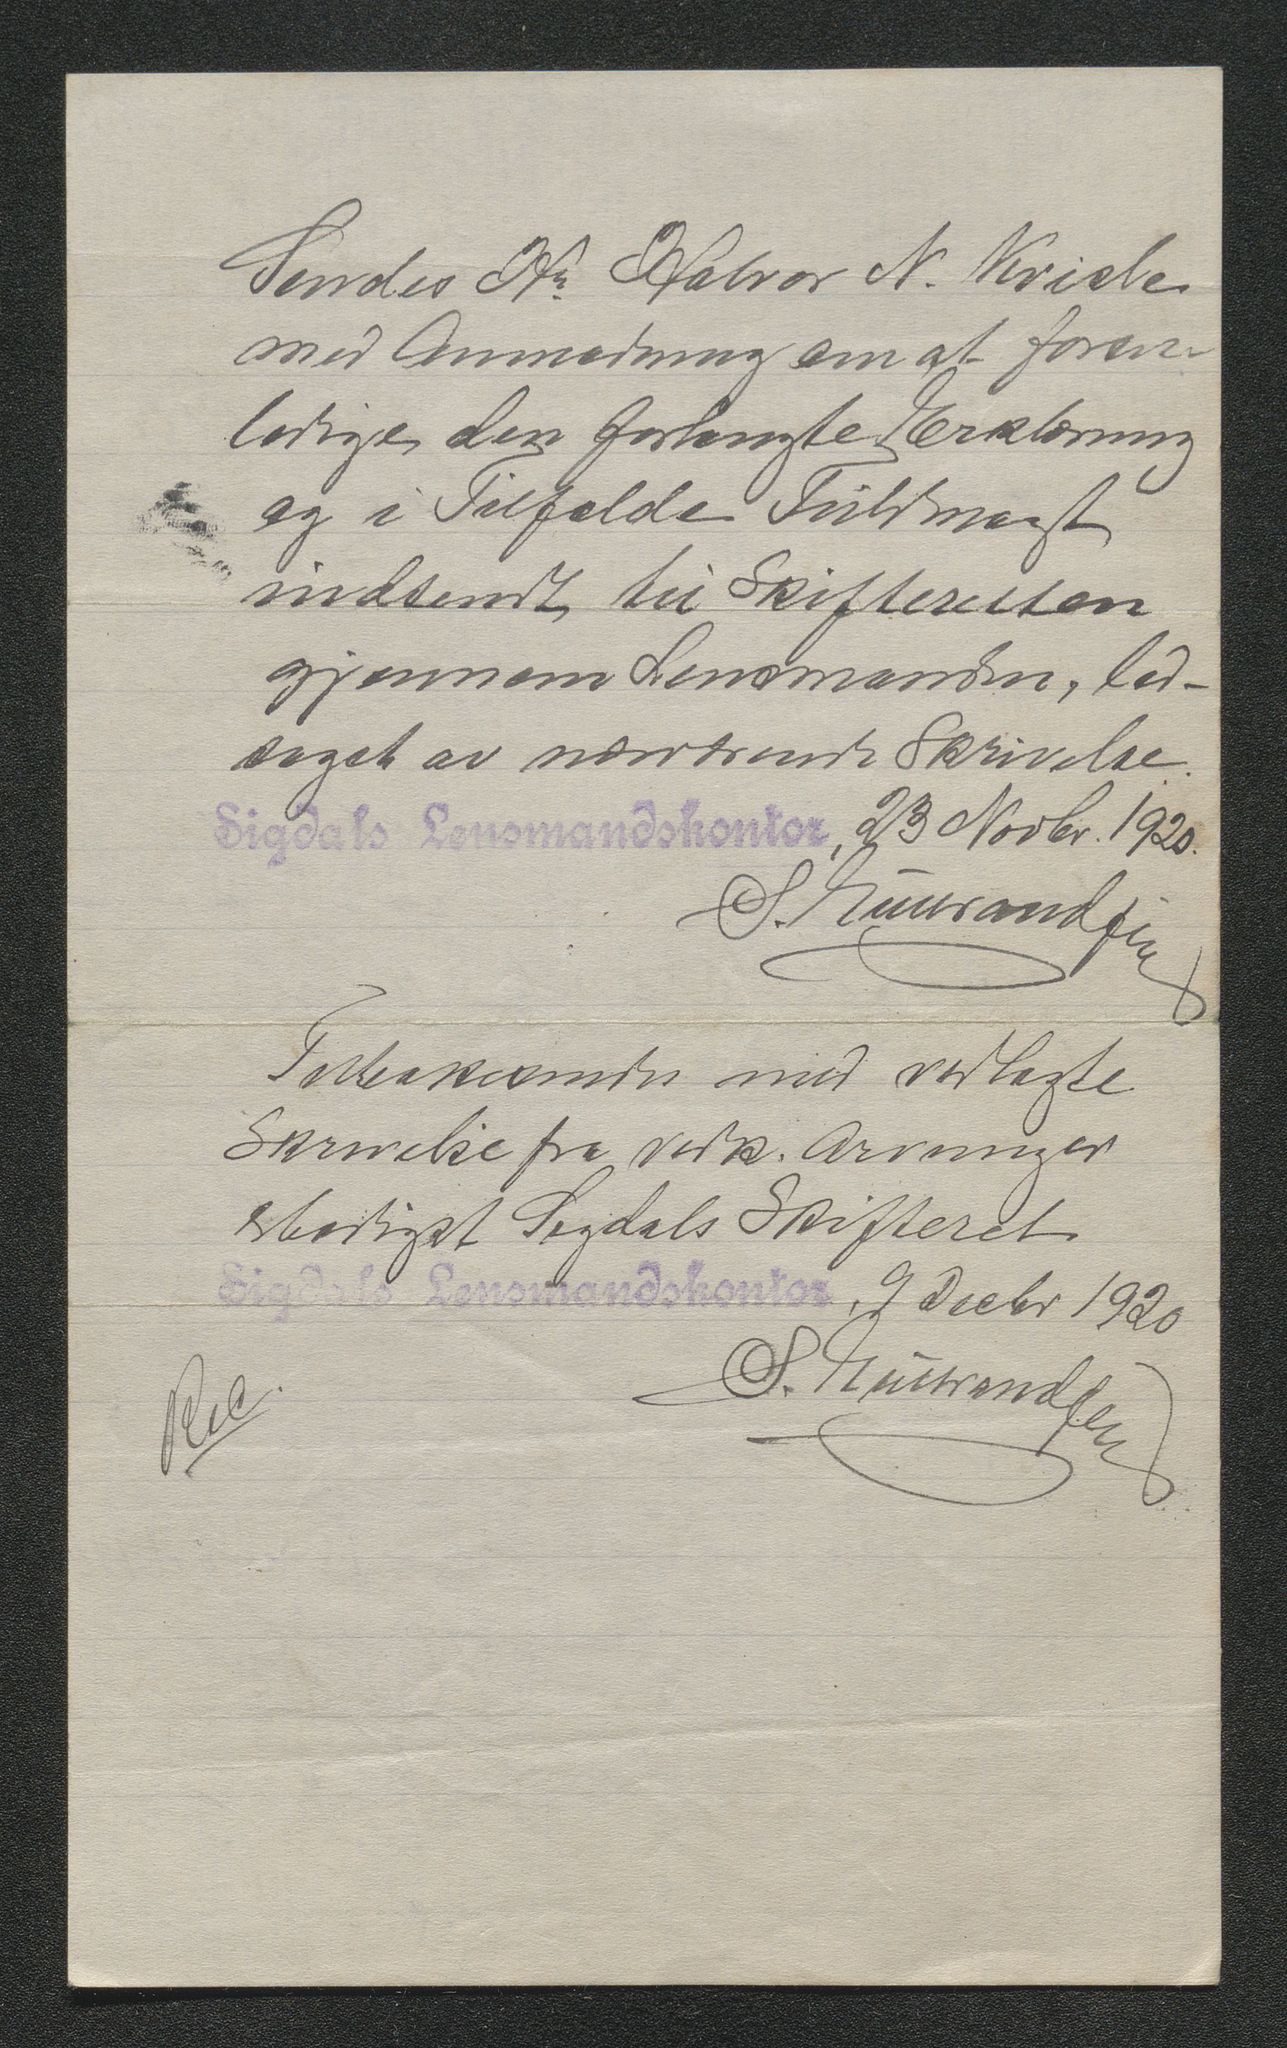 Sendes Hr. Halvor N. Kvisle
med Anmodning om at foran-
ledige den forlangte Erklæring
og i Tilfælde Fuldmagt
indsendt til Skifteretten
gjennem Lensmanden, led-
saget av nærværende Skrivelse.
Sigdals Lensmandskontor, 23 Novbr. 1920.
S. Gulbrandsen
Tilbakesendes med vedlagte
Skrivelse fra vedk. Arvinger
ærbødigst Sigdals Skifteret
Sigdals Lensmandskontor, 9 Decbr 1920
S. Gulbrandsen